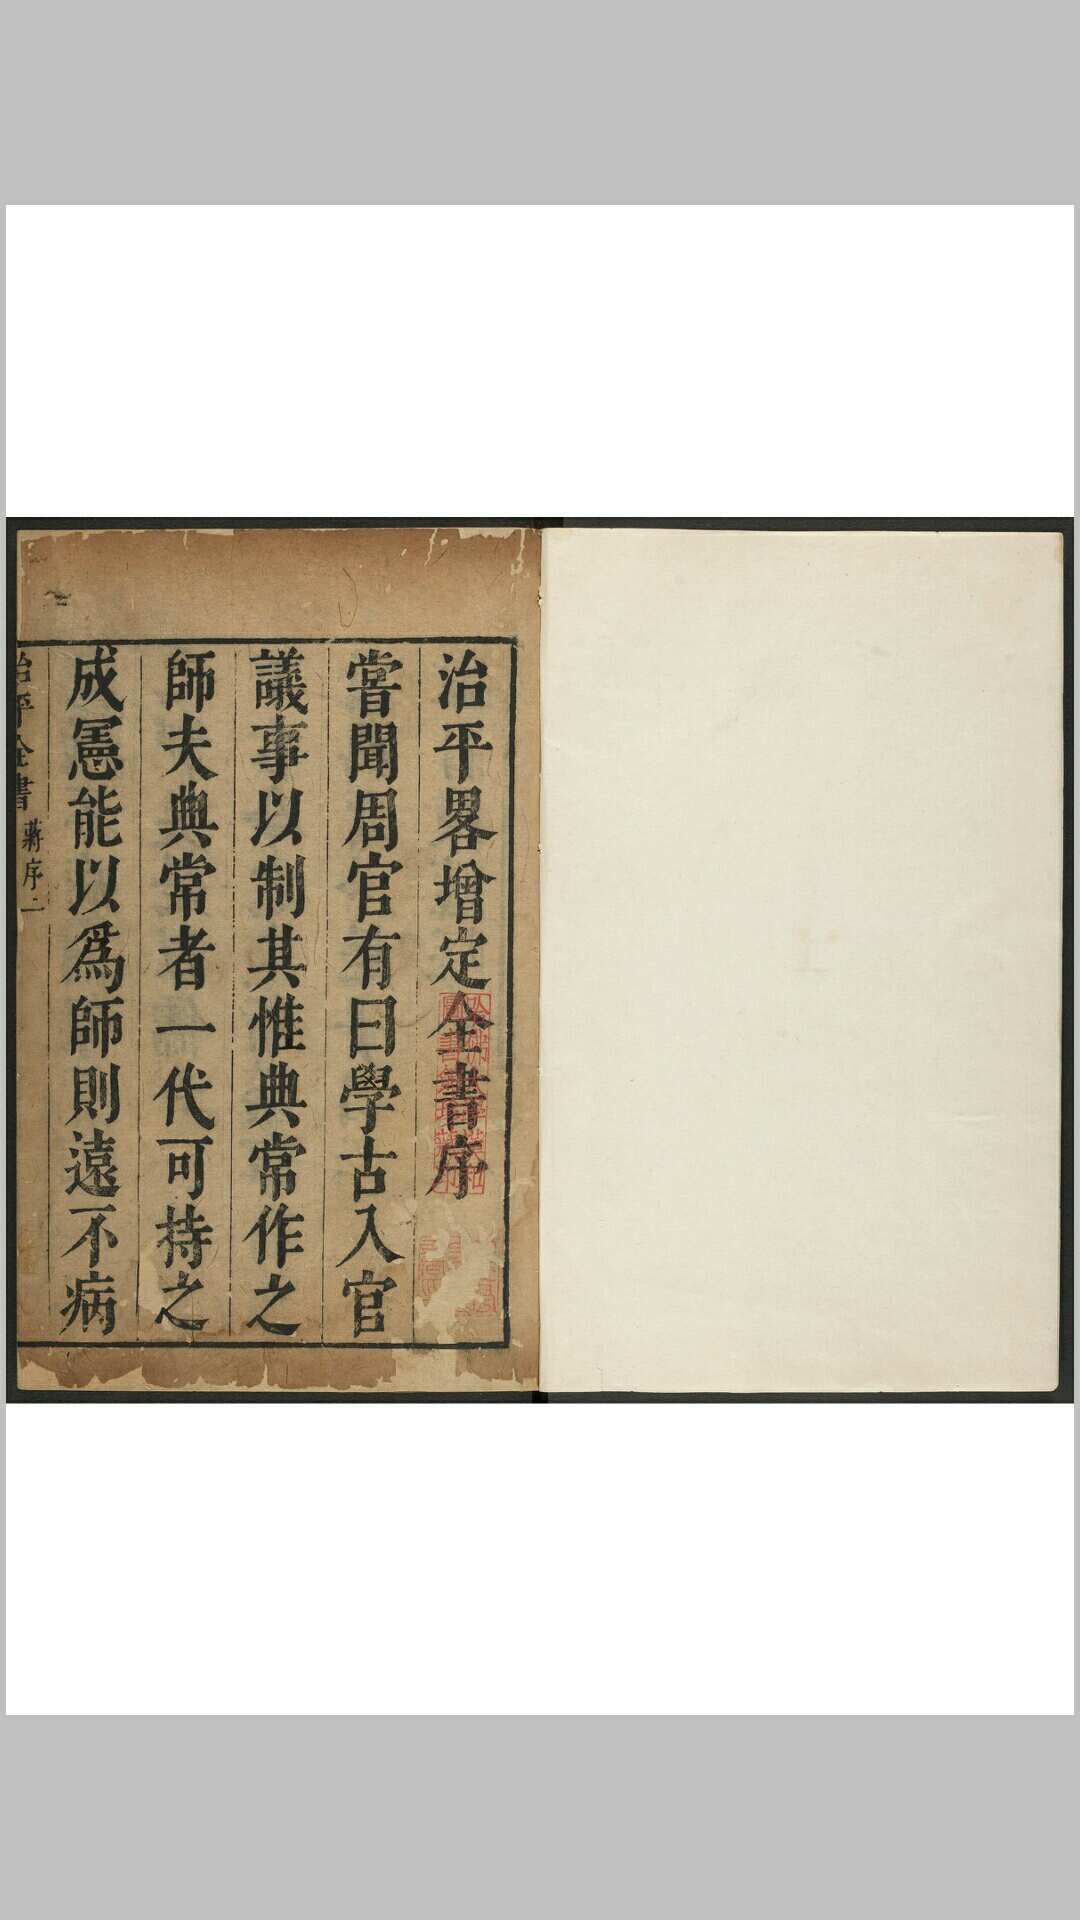 治平畧增定全書序
嘗聞周官有曰學古入官
議事以制其惟典常作之
師夫典常者一代可持之
成憲能以爲師則遠不病
治平全書
蔣序 一